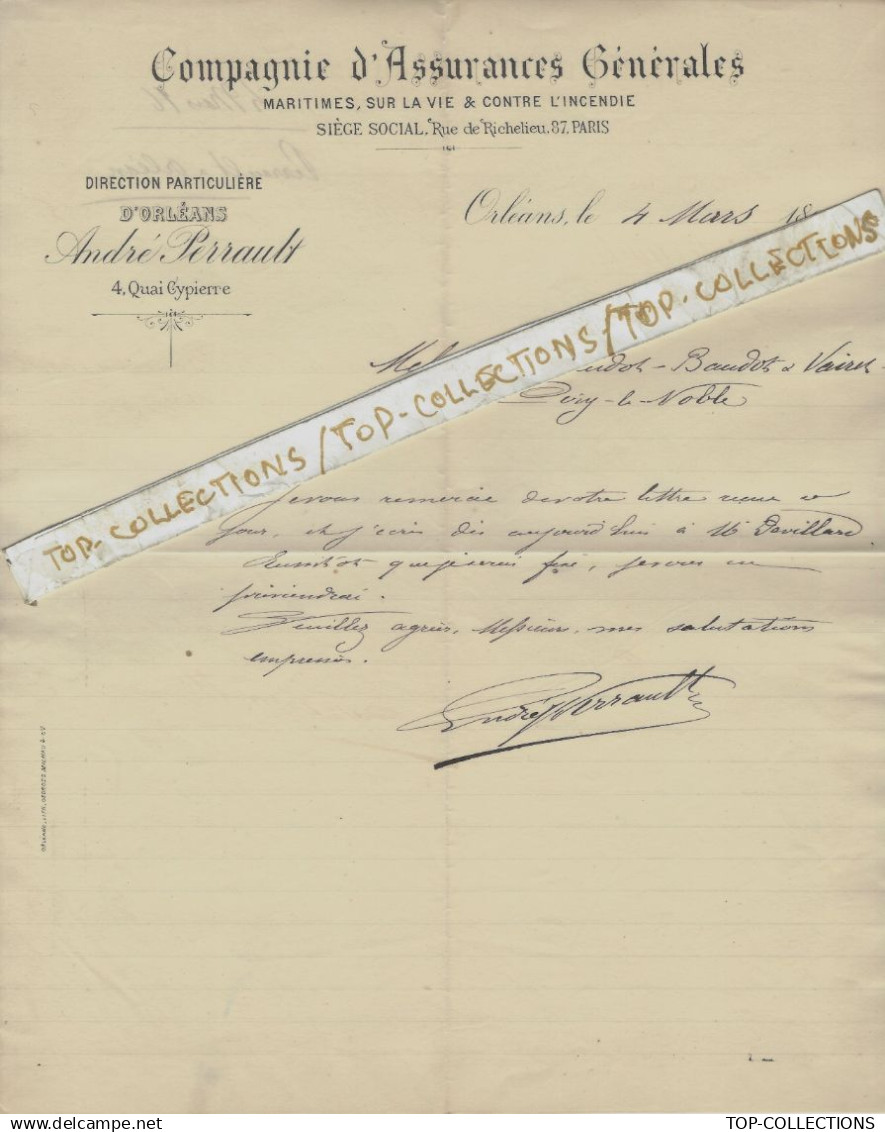 Compagnie d'Assurances Générales
MARITIMES, SUR LA VIE & CONTRE L'INCENDIE
SIÈGE SOCIAL, Rue de Richelieu, 87, PARIS
DIRECTION PARTICULIÈRE
D'ORLÉANS
André Perrault
4, Quai Cypierre
Orléans, le 4 Mars 18
Baudot & Vairet
le Noble
TOP-COLLECTIONS / TOP-COLLECTIONS / TOP-COLLECTIONS
Je vous remercie de votre lettre reçue ce
jour, et j'écris dès aujourd'hui à Mr Devillard
Aussitôt que je serai fixé, je vous en
préviendrai.
Veuillez agréer, Messieurs, mes salutations
empressées.
André Perrault
TOP-COLLECTIONS
delcampe.net